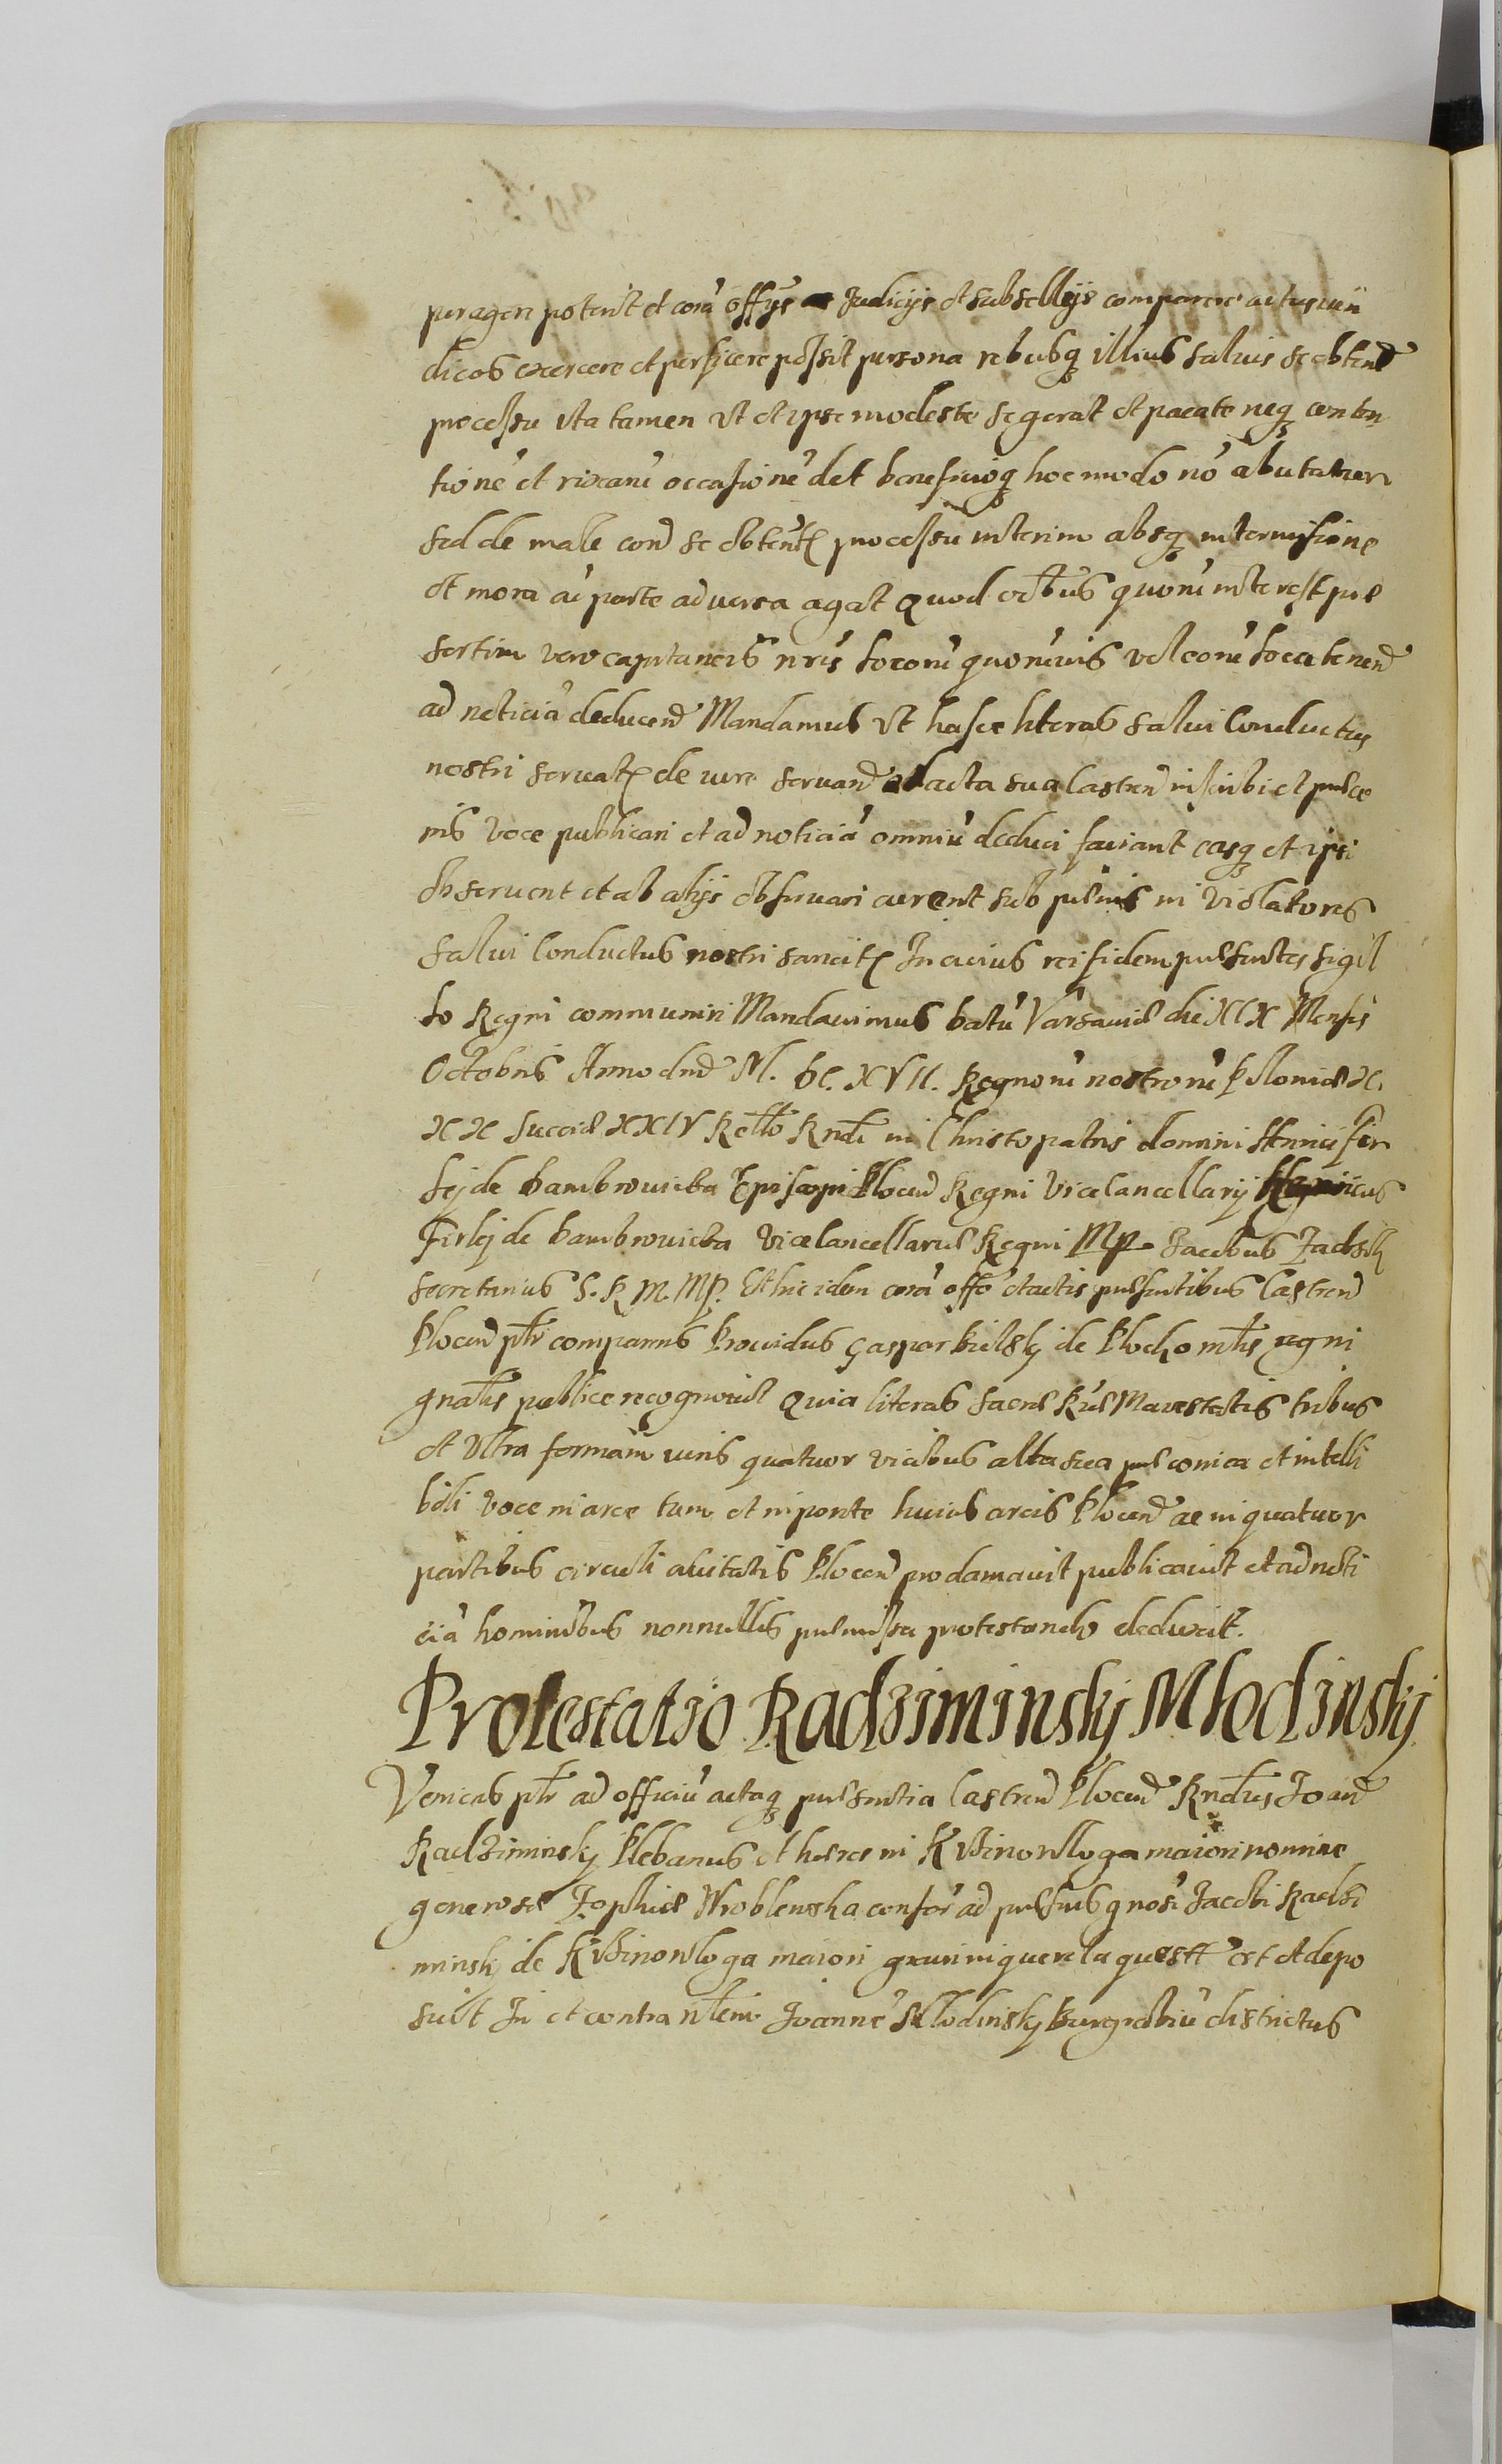 peragere poterit et corā offijs Iudicijs et subsellijs comparere actus iuri
dicos exercere et perficere possit persona rebusq illius saluis se obtend
processu ita tamen ut et ipse modeste se gerat et pacate neq conten
tionē et rixarū occasionē det beneficioq hoc modo nō abutatur
sed de male con̄ se obtentꝭ processu interim absq intermissione
et mora aī parte aduersa agat Quod oībus quorū interest prae
sertim vero capitaneis nrīs locorū quorūuis vel eorū loca tenen̄
ad noticiā deducend Mandamus Ut hasce literas salui Conductus
nostri seruatꝭ de iure seruand ad acta sua Castren̄ inscribi et praeco
nis voce publicari et ad noticiā omniū deduci faciant easq et ipsi
obseruent et ab alijs obseruari curent sub paenis in violatores
salui Conductus nostri sancitꝭ In cuius rei fidem praesentes sigil
lo Regni communiri Mandauimus Datū Varsauiae die XIX Mensis
Octobris Anno dnī M. DC. XVII. Regnorū nostrorū Poloniae X.
XX Sueciae XXIV Rel̄lo Rndi in Christo patris domini Henrici fir
lej de Dambrouicza Episcopi Plocen̄ Regni Vicecancellarij Henricus
Firlej de Dambrouicza Vicecancellarius Regni MP Jacobus Zadzik
secretarius S. R. M. MP. Et hic idem corā offo et actis praesentibus Castren̄
Plocen̄ ptr comparens Prouidus Gaspar Bielskj de Plocko mtis regni
gnalis publice recognouit Quia literas Sacrae Rae Maiestatis tribus
et ultra formam iuris quatuor vicibus alta sua praeconica et intelli
bili voce in arce tum et in ponte huius arcis Plocen̄ ac in quatuor
partibus circuli ciuitatis Plocen̄ proclamauit publicauit et ad noti
ciā hominibus nonnullis praemissa protestando deduxit.
Protestatio Radziminskj Młodzinskj
Veniens ptr ad officiū actaq praesentia Castren̄ Plocen̄ Rndus Joan̄
Radziminskj Plebanus et haeres in Krzinowłoga maiori nomine
generosae Zophiae Wroblewska consor̄ ad praesens gnosi Jacobi Radzi
minskj de Krzinowłoga maiori graui in querela quest est et depo
suit In et contra nlem Joannē Młodzinskj Burgrabiū districtus